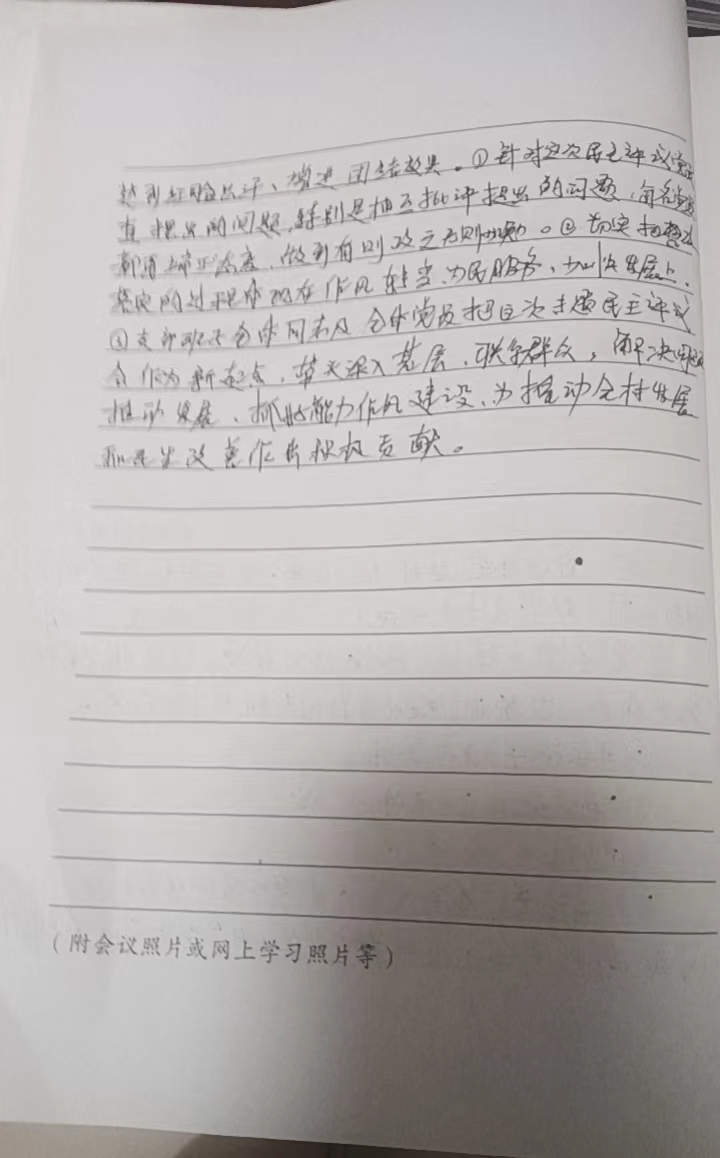 达到红脸出汗、增进团结效果。①针对这次民主评议党员
提出的问题,特别是相互批评提出的问题,每名党员
都要端正态度,做到有则改之无则加勉。②切实把整改
落实的过程体现在作风转变、为民服务、发展上。
③支部班子全体同志及全体党员把这次专题民主评议
会作为新起点,带头深入基层,联系群众,解决问题
推动发展、抓好能力作风建设、为推动全村发展
和民生改善作出积极贡献。
(附会议照片或网上学习照片等)